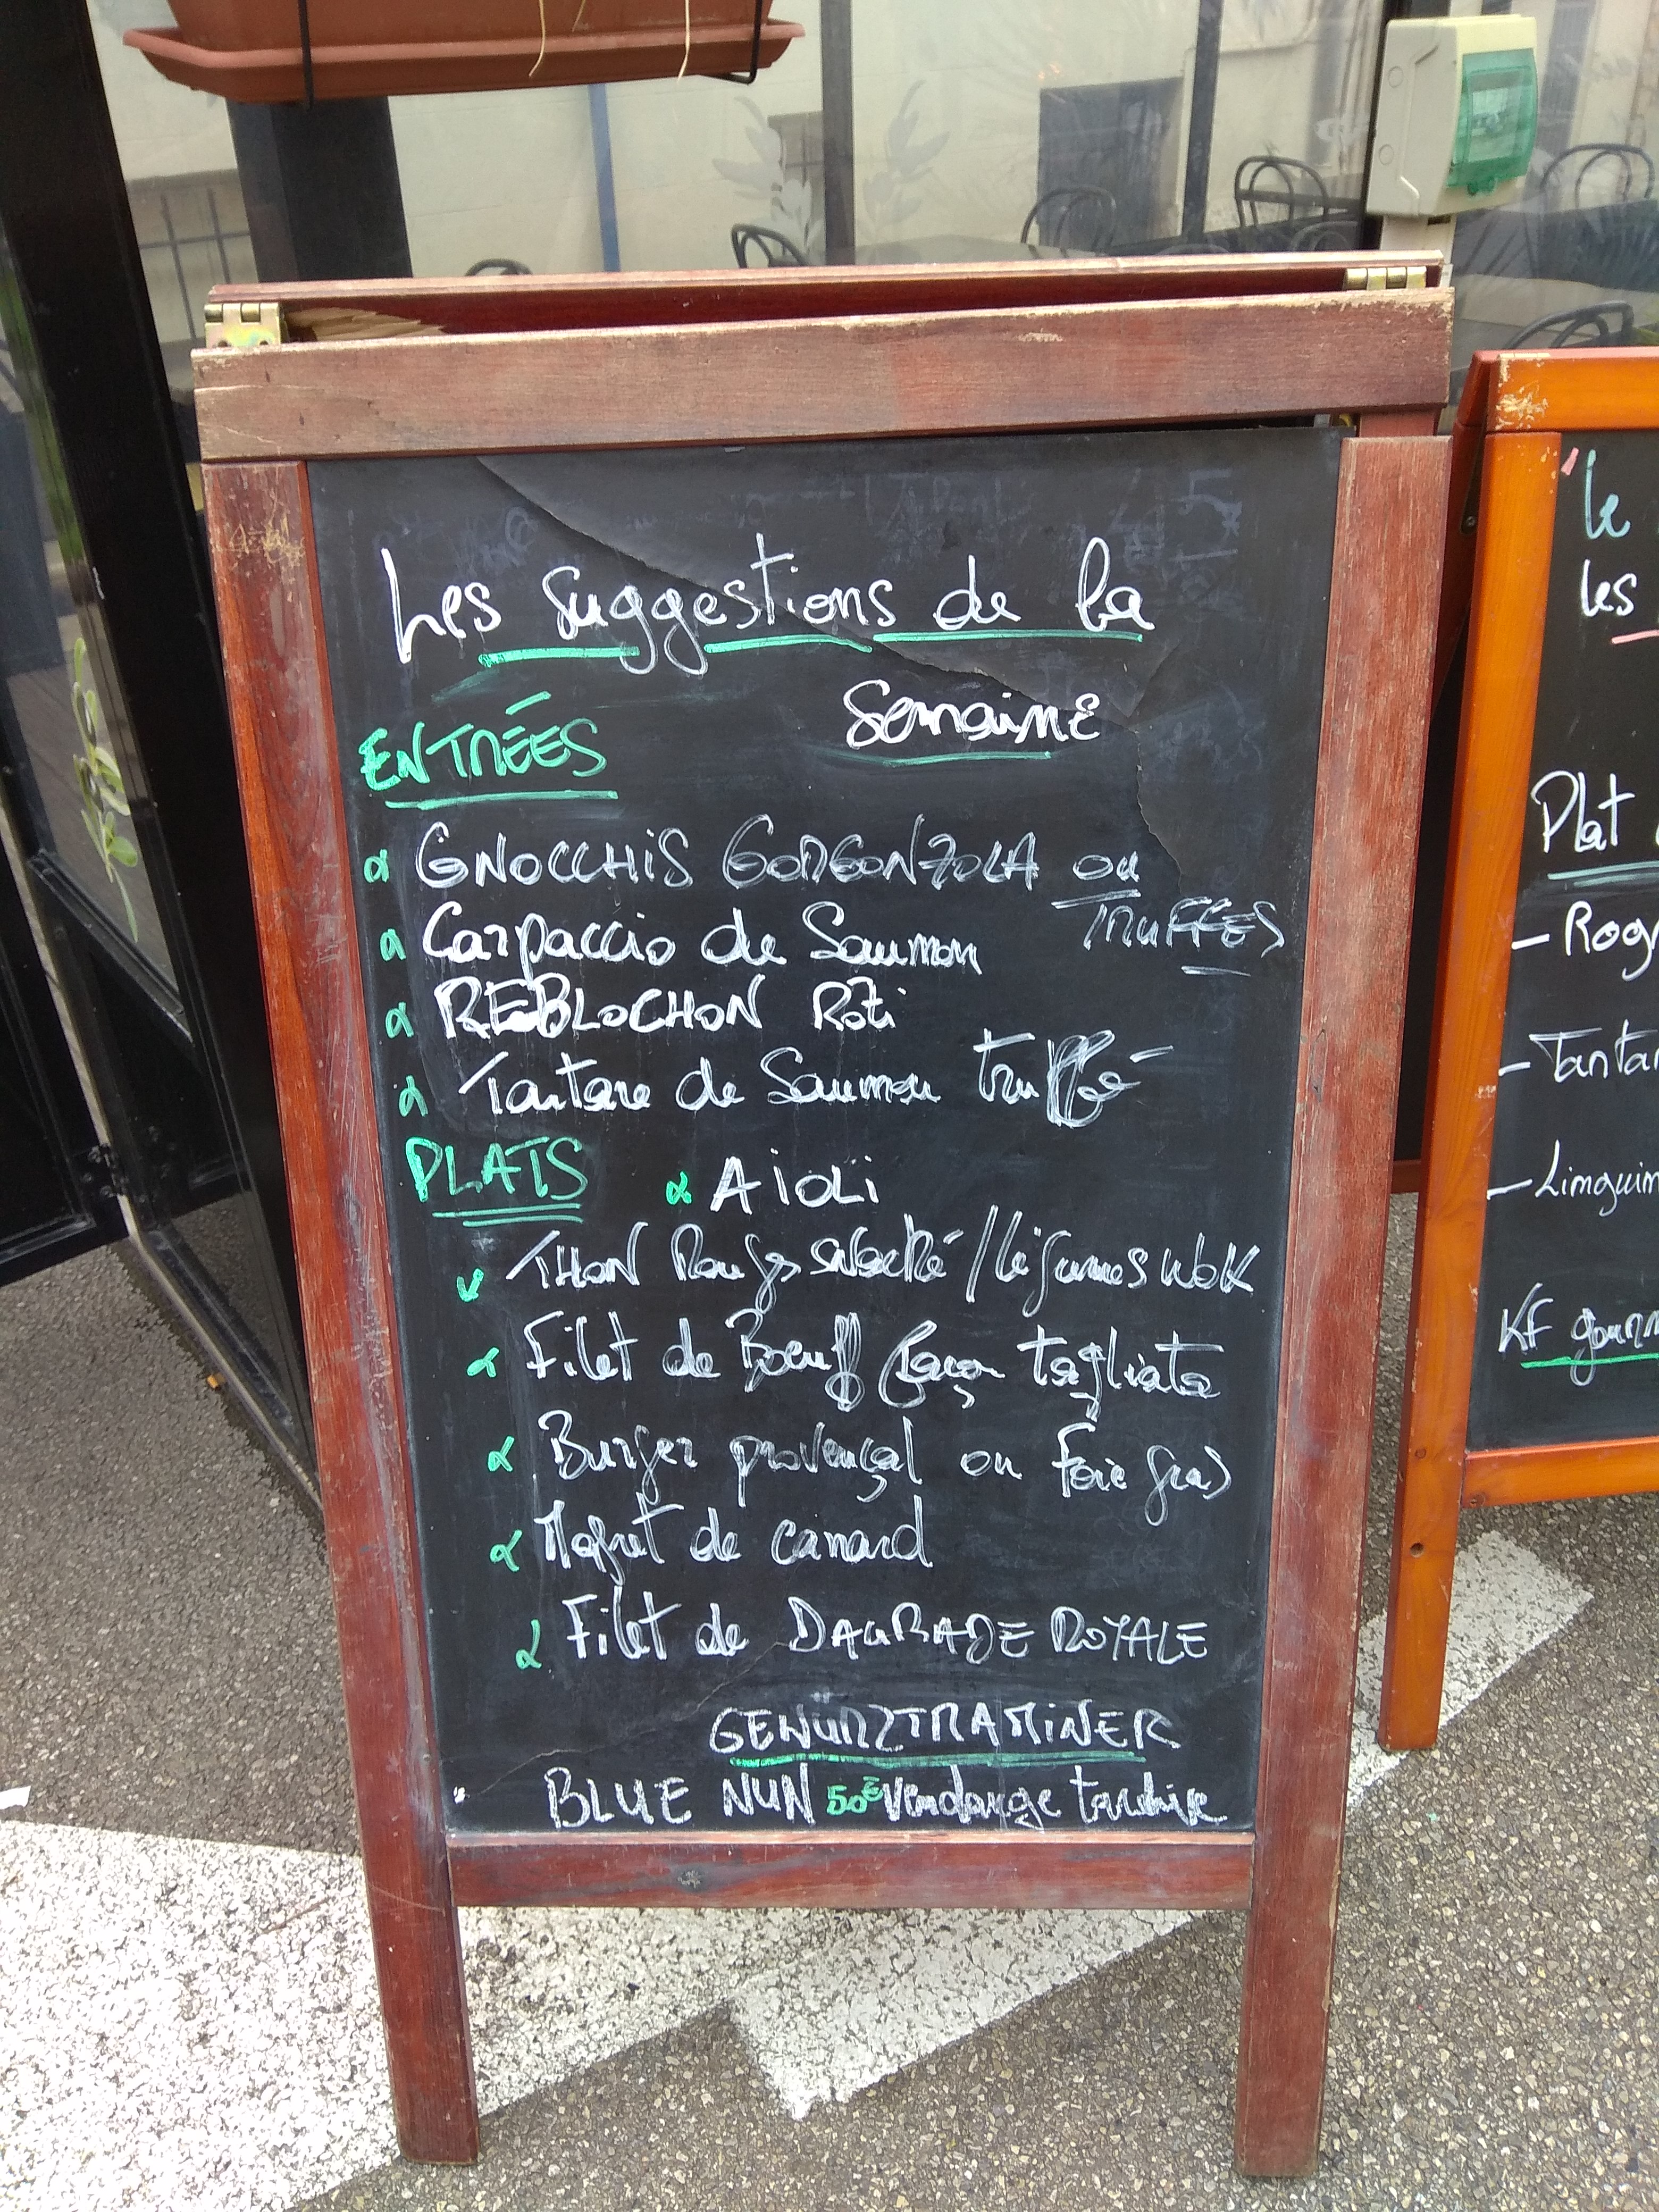 Les Suggestions de la
Semaine
ENTRÉES
GNOCCHIS GORGONZOLA ou
TRUFFES
Carpaccio de Saumon
REBLOCHON Roti
Tartare de Saumon truffé
PLATS
AiOLi
THON Rouge snacké / légumes WOK
Filet de Boeuf façon tagliata
Burger provençal ou Foie gras
Magret de canard
Filet de DAURADE ROYALE
GEWURZTRAMINER
BLUE NUN 50€ Vendange tardive
le
les
Plat
- Rogn
- Tartar
- Linguin
KF gourm